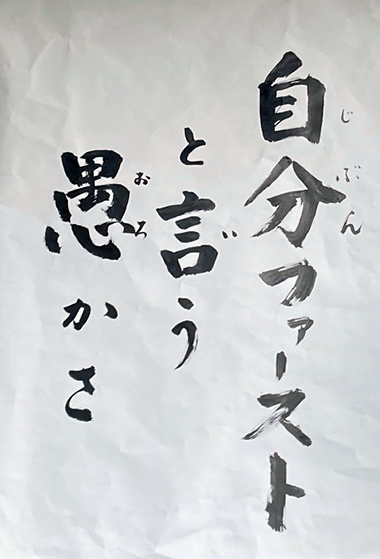 自分ファースト
じぶん
と言う
い
愚かさ
おろ